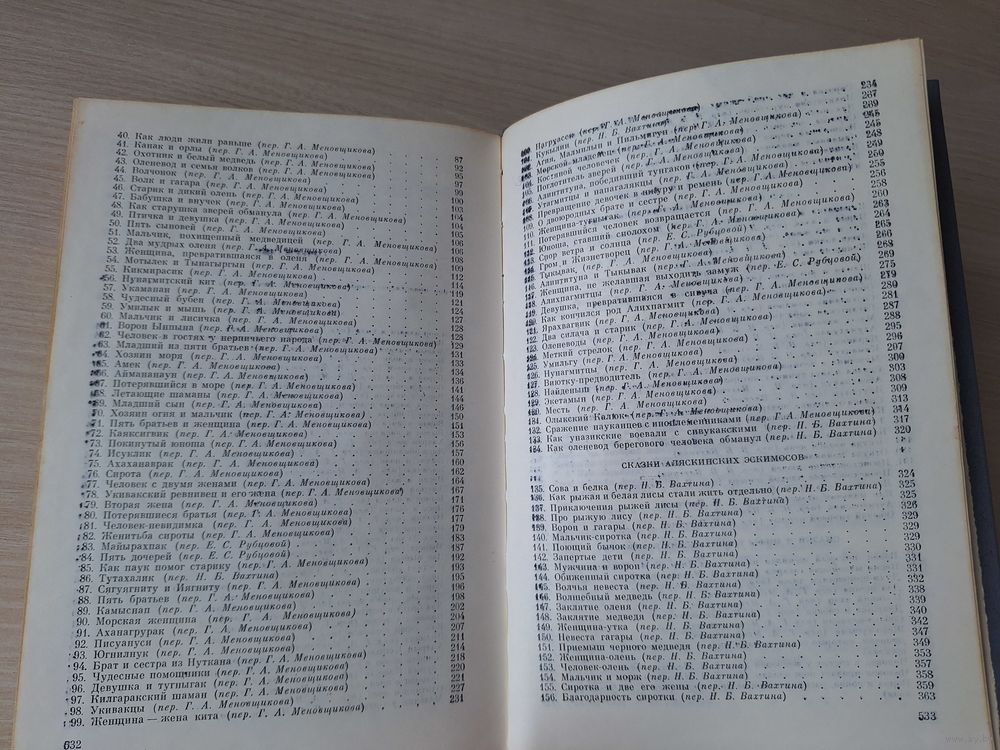 40. Как люди жили раньше (пер. Г. А. Меновщикова) 87
41. Канак и орлы (пер. Г. А. Меновщикова) 92
42. Охотник и белый медведь (пер. Г. А. Меновщикова) 93
43. Оленевод и семья волков (пер. Г. А. Меновщикова) 95
44. Волчонок (пер. Г. А. Меновщикова) 97
45. Волк и гагара (пер. Г. А. Меновщикова) 99
46. Старик и дикий олень (пер. Г. А. Меновщикова) 100
47. Бабушка и внучек (пер. Г. А. Меновщикова) 103
48. Как старушка зверей обманула (пер. Г. А. Меновщикова) 104
49. Птичка и девушка (пер. Г. А. Меновщикова) 104
50. Пять сыновей (пер. Г. А. Меновщикова) 105
51. Мальчик, похищенный медведицей (пер. Г. А. Меновщикова) 106
52. Два мудрых оленя (пер. Г. А. Меновщикова) 108
53. Женщина, превратившаяся в оленя (пер. Г. А. Меновщикова) 109
54. Мотылек и Тынагыргын (пер. Г. А. Меновщикова) 109
55. Кикмирасик (пер. Г. А. Меновщикова) 112
56. Нунагмитский кит (пер. Г. А. Меновщикова) 114
57. Укаманан (пер. Г. А. Меновщикова) 119
58. Чудесный бубен (пер. Г. А. Меновщикова) 121
59. Умилык и мышь (пер. Г. А. Меновщикова) 124
60. Мальчик и лисичка (пер. Г. А. Меновщикова) 124
61. Ворон Ыпыпа (пер. Г. А. Меновщикова) 128
62. Человек в гостях у нерпичьего народа (пер. Г. А. Меновщикова) 128
63. Младший из пяти братьев (пер. Г. А. Меновщикова) 129
64. Хозяин моря (пер. Г. А. Меновщикова) 131
65. Амек (пер. Г. А. Меновщикова) 133
66. Аймананаун (пер. Г. А. Меновщикова) 136
67. Потерявшийся в море (пер. Г. А. Меновщикова) 141
68. Летающие шаманы (пер. Г. А. Меновщикова) 144
69. Младший сын (пер. Г. А. Меновщикова) 146
70. Хозяин огня и мальчик (пер. Г. А. Меновщикова) 150
71. Пять братьев и женщина (пер. Г. А. Меновщикова) 151
72. Каяксигвик (пер. Г. А. Меновщикова) 153
73. Покинутый юноша (пер. Г. А. Меновщикова) 156
74. Исуклик (пер. Г. А. Меновщикова) 157
75. Ахаханаврак (пер. Г. А. Меновщикова) 160
76. Сирота (пер. Г. А. Меновщикова) 162
77. Человек с двумя женами (пер. Г. А. Меновщикова) 164
78. Укивакский ревнивец и его жена (пер. Г. А. Меновщикова) 167
79. Вторая жена (пер. Г. А. Меновщикова) 171
80. Потерявшиеся братья (пер. Г. А. Меновщикова) 176
81. Человек-невидимка (пер. Г. А. Меновщикова) 177
82. Женитьба сироты (пер. Г. А. Меновщикова) 179
83. Майырахпак (пер. Е. С. Рубцовой) 182
84. Пять дочерей (пер. Е. С. Рубцовой) 187
85. Как паук помог старику (пер. Г. А. Меновщикова) 192
86. Тутахалик (пер. Н. Б. Вахтина) 193
87. Сягуягниту и Иягниту (пер. Г. А. Меновщикова) 195
88. Пять братьев (пер. Г. А. Меновщикова) 196
89. Камыснап (пер. Г. А. Меновщикова) 198
90. Морская женщина (пер. Г. А. Меновщикова) 202
91. Аханагрурак (пер. Г. А. Меновщикова) 204
92. Писуануси (пер. Г. А. Меновщикова) 207
93. Югнилнук (пер. Г. А. Меновщикова) 211
94. Брат и сестра из Нуткана (пер. Г. А. Меновщикова) 214
95. Чудесные помощники (пер. Г. А. Меновщикова) 218
96. Девушка и тугныгак (пер. Г. А. Меновщикова) 220
97. Килгаракский шаман (пер. Г. А. Меновщикова) 221
98. Укивакцы (пер. Г. А. Меновщикова) 227
99. Женщина — жена кита (пер. Г. А. Меновщикова) 231
632
100. Нагруассе (пер. Г. А. Меновщикова) 234
101. Кукылин (пер. Н. Б. Вахтина) 237
Агия, Малылын и Пильмигун (пер. Г. А. Меновщикова) 239
Морской младенец (пер. Г. А. Меновщикова) 245
Поглотитель зверей (пер. Г. А. Меновщикова)
Алипитуна, победивший тунгаков (пер. Г. А. Меновщикова)
Утагмитцы и напагалякцы (пер. Г. А. Меновщикова) 245
107. Превращение девочек в амгуру и ремень (пер. Г. А. Меновщикова) 248
108. О двоюродных брате и сестре (пер. Г. А. Меновщикова) 250
109. Женщина-тунгак (пер. Г. А. Меновщикова) 255
110. Потерявшийся человек возвращается (пер. Г. А. Меновщикова) 256
111. Юноша, ставший сполохом (пер. Г. А. Меновщикова) 258
112. Спор ветра и солнца (пер. Е. С. Рубцовой) 260
113. Гром и Жизнетворец (пер. Г. А. Меновщикова) 263
114. Тыкывак (пер. Г. А. Меновщикова) 265
115. Алипитуна и Тыкывак (пер. Г. А. Меновщикова) 266
116. Женщина, не желавшая выходить замуж (пер. Е. С. Рубцовой) 268
117. Алихпагмитцы (пер. Г. А. Меновщикова) 269
118. Девушка, превратившийся в сивуча (пер. Г. А. Меновщикова) 275
119. Как кончился род Алихпагмит (пер. Г. А. Меновщикова) 279
120. Ярахвагвик (пер. Г. А. Меновщикова) 280
121. Два силача и старик (пер. Г. А. Меновщикова) 281
122. Оленеводы (пер. Г. А. Меновщикова) 287
123. Меткий стрелок (пер. Г. А. Меновщикова) 288
124. Умильгу (пер. Г. А. Меновщикова) 295
125. Нунагмитцы (пер. Г. А. Меновщикова) 296
126. Виютку-предводитель (пер. Г. А. Меновщикова) 297
127. Найденыш (пер. Г. А. Меновщикова) 300
128. Экетамын (пер. Г. А. Меновщикова) 303
130. Месть (пер. Г. А. Меновщикова) 308
131. Олыкский Калюк (пер. Г. А. Меновщикова) 313
132. Сражение науканцев с иноплеменниками (пер. Г. А. Меновщикова) 314
133. Как уназикские воевали с сивукакскими (пер. Н. Б. Вахтина) 317
134. Как оленевод берегового человека обманул (пер. Н. Б. Вахтина) 320
СКАЗКИ АЛЯСКИНСКИХ ЭСКИМОСОВ
135. Сова и белка (пер. Н. Б. Вахтина) 324
136. Как рыжая и белая лисы стали жить отдельно (пер. Н. Б. Вахтина) 325
137. Приключения рыжей лисы (пер. Н. Б. Вахтина) 325
138. Про рыжую лису (пер. Н. Б. Вахтина) 326
139. Ворон и гагары (пер. Н. Б. Вахтина) 329
140. Мальчик-сиротка (пер. Н. Б. Вахтина) 329
141. Поющий бычок (пер. Н. Б. Вахтина) 330
142. Запертые дети (пер. Н. Б. Вахтина) 330
143. Мужчина и ворон (пер. Н. Б. Вахтина) 331
144. Обиженный сиротка (пер. Н. Б. Вахтина) 331
145. Волчья невеста (пер. Н. Б. Вахтина) 332
146. Волшебный медведь (пер. Н. Б. Вахтина) 338
147. Заклятие оленя (пер. Н. Б. Вахтина) 339
148. Заклятие медведя (пер. Н. Б. Вахтина) 340
149. Женщина-утка (пер. Н. Б. Вахтина) 342
150. Невеста гагары (пер. Н. Б. Вахтина) 347
151. Приемыш черного медведя (пер. Н. Б. Вахтина) 349
152. Женщина-олень (пер. Н. Б. Вахтина) 353
153. Человек-олень (пер. Н. Б. Вахтина) 357
154. Мальчик и морж (пер. Н. Б. Вахтина) 358
155. Сиротка и две его жены (пер. Н. Б. Вахтина) 359
156. Благодарность сиротки (пер. Н. Б. Вахтина) 363
533